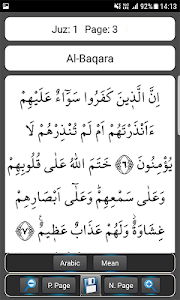 92% 14:13
Juz: 1 Page: 3
Al-Baqara
اِنَّ الَّذٖينَ كَفَرُوا سَوَٓاءٌ عَلَيْهِمْ
ءَاَنْذَرْتَهُمْ اَمْ لَمْ تُنْذِرْهُمْ لَا
يُؤْمِنُونَ ﴿٦﴾ خَتَمَ اللّٰهُ عَلٰى قُلُوبِهِمْ
وَعَلٰى سَمْعِهِمْ وَعَلٰٓى اَبْصَارِهِمْ
غِشَاوَةٌ وَلَهُمْ عَذَابٌ عَظٖيمٌ ﴿٧﴾
Arabic Mean
P. Page N. Page